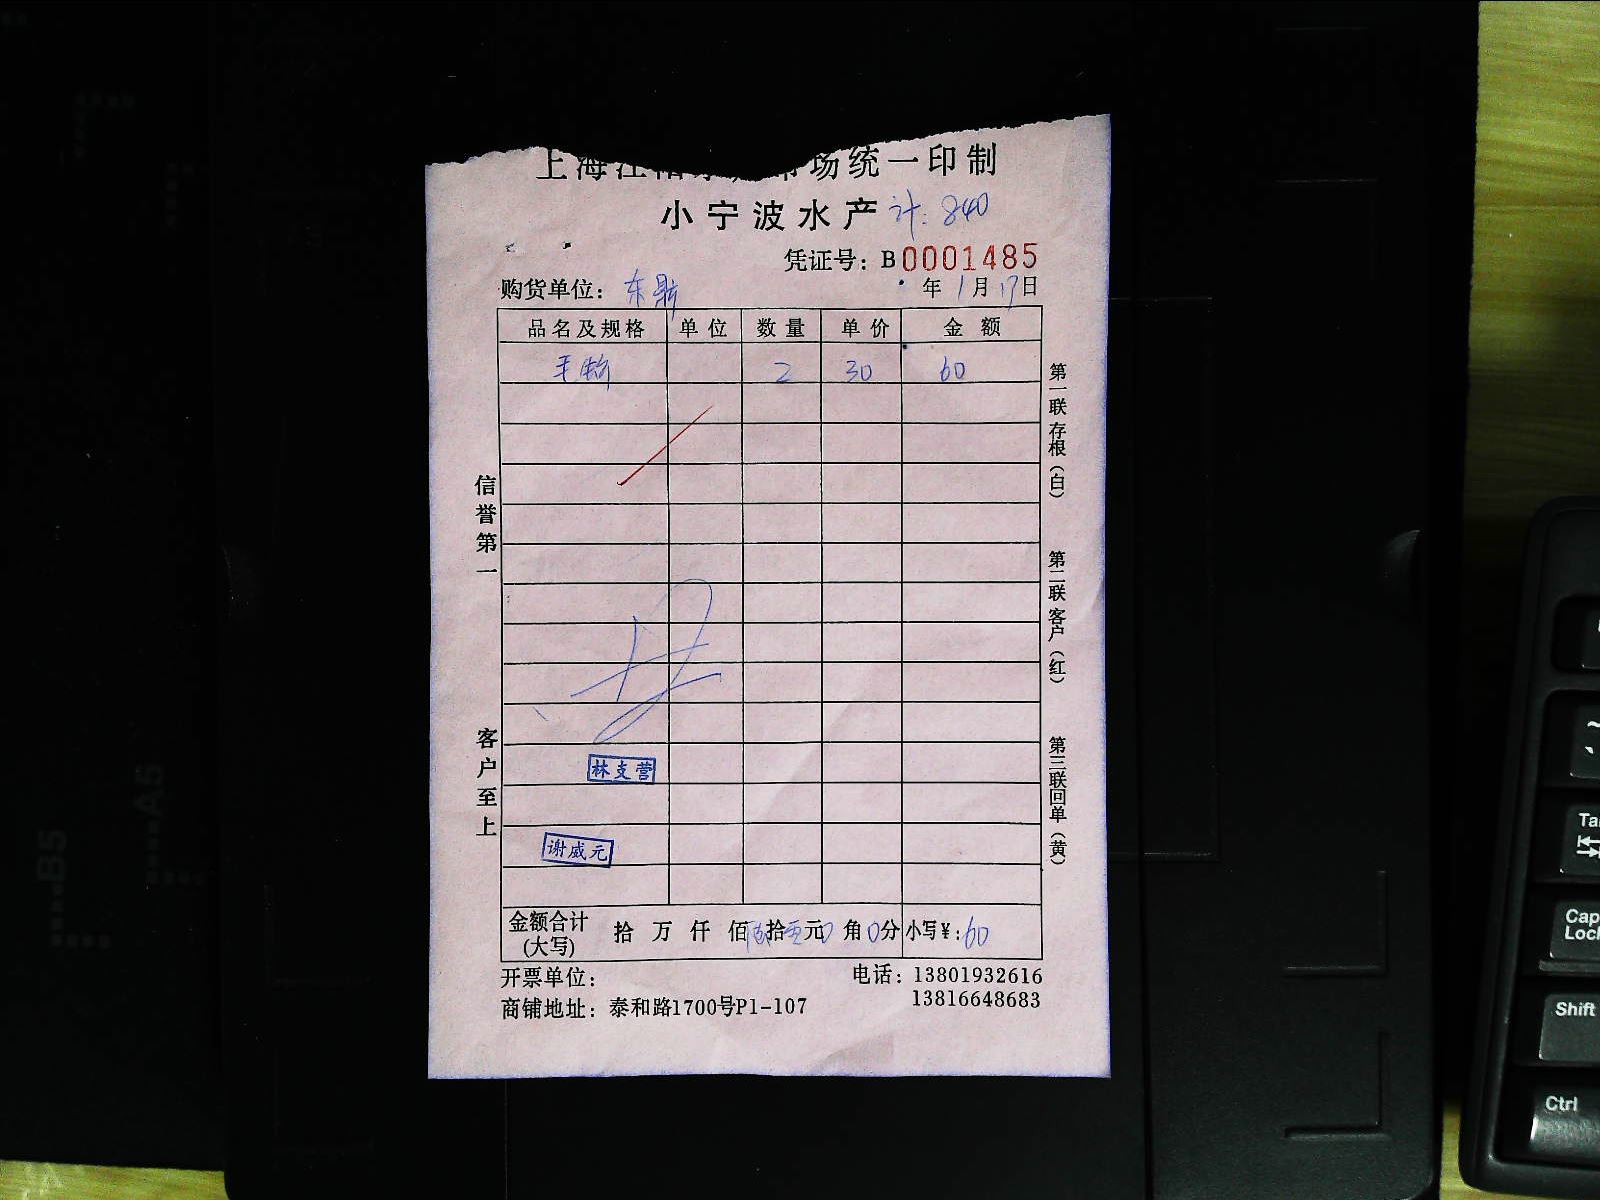 上海江 市场统一印制
小宁波水产 计:840
凭证号:B0001485
购货单位:东 年1月17日
品名及规格 单位 数量 单价 金额
毛蚶 2 30 60
信誉第一
客户至上
第一联存根(白)
第二联客户(红)
第三联回单(黄)
林支营
谢威元
金额合计(大写) 拾 万 仟 佰陆拾零元0角0分 小写¥:60
开票单位: 电话:13801932616
13816648683
商铺地址:泰和路1700号P1-107
B5
A5
Tab
Caps Lock
Shift
Ctrl